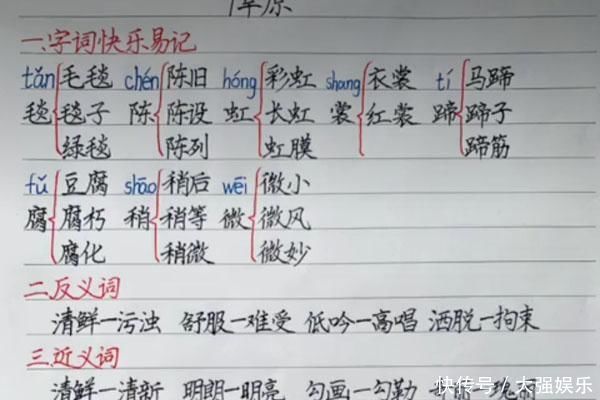 一.字词快乐易记
tǎn 毛毯 chén 陈旧 hóng 彩虹 shang 衣裳 tí 马蹄
毯 毯子 陈 陈设 虹 长虹 裳 红裳 蹄 蹄子
绿毯 陈列 虹膜 蹄筋
fǔ 豆腐 shāo 稍后 wēi 微小
腐 腐朽 稍 稍等 微 微风
腐化 稍微 微妙
二.反义词
清鲜一污浊 舒服一难受 低吟一高唱 洒脱一拘束
三.近义词
清鲜一清新 明朗一明亮 勾画一勾勒
快传号/大强娱乐